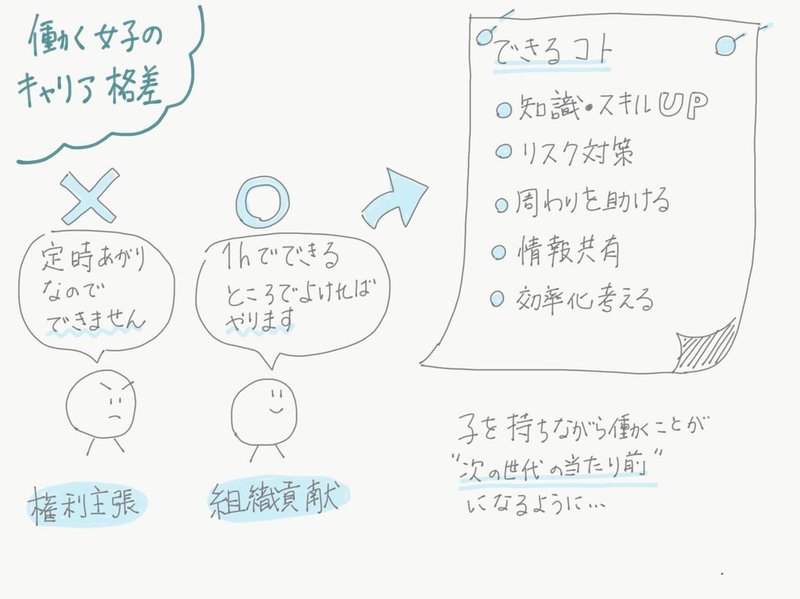 働く女子の
キャリア格差
定時あがり
なので
できません
権利主張
1hでできる
ところでよければ
やります
組織貢献
できるコト
知識・スキルUP
リスク対策
周わりを助ける
情報共有
効率化考える
子を持ちながら働くことが
"次の世代の当たり前"
になるように…